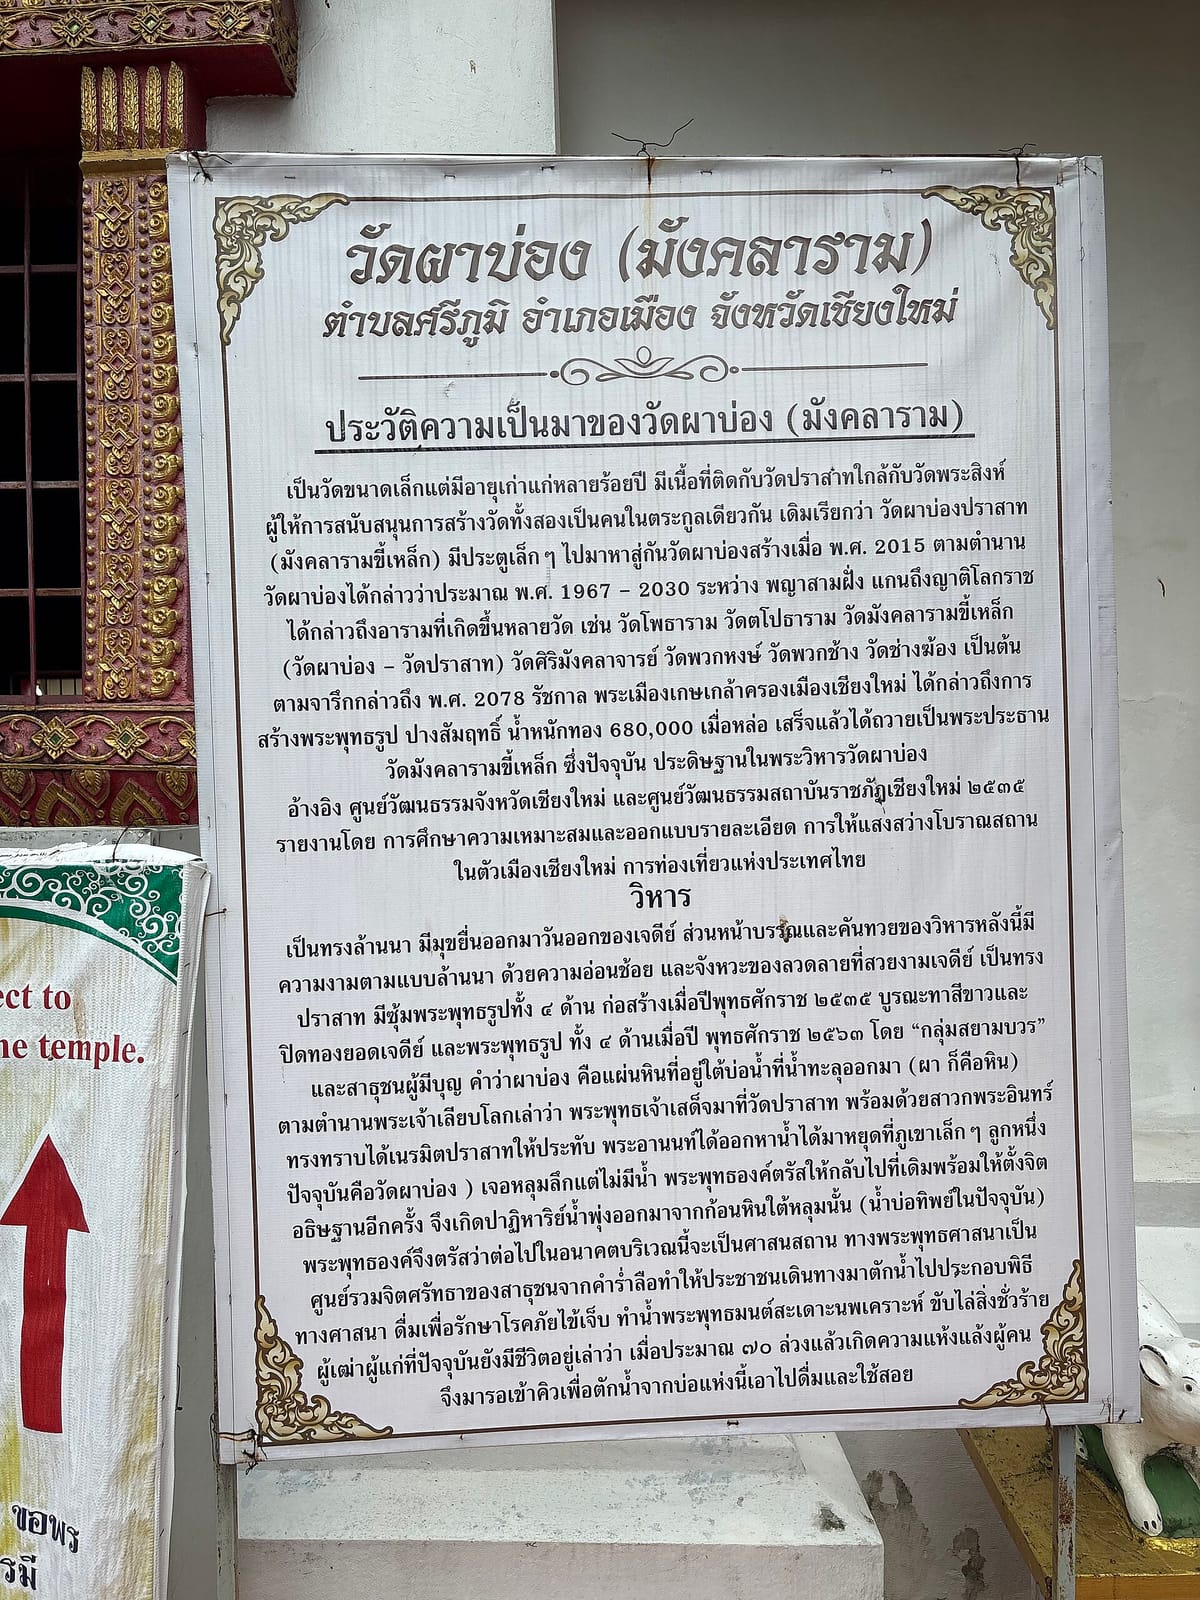 วัดผาบ่อง (มังคลาราม)
ตำบลศรีภูมิ อำเภอเมือง จังหวัดเชียงใหม่
ประวัติความเป็นมาของวัดผาบ่อง (มังคลาราม)
เป็นวัดขนาดเล็กแต่มีอายุเก่าแก่หลายร้อยปี มีเนื้อที่ติดกับวัดปราสาทใกล้กับวัดพระสิงห์
ผู้ให้การสนับสนุนการสร้างวัดทั้งสองเป็นคนในตระกูลเดียวกัน เดิมเรียกว่า วัดผาบ่องปราสาท
(มังคลารามขี้เหล็ก) มีประตูเล็ก ๆ ไปมาหาสู่กันวัดผาบ่องสร้างเมื่อ พ.ศ. 2015 ตามตำนาน
วัดผาบ่องได้กล่าวว่าประมาณ พ.ศ. 1967 – 2030 ระหว่าง พญาสามฝั่ง แกนถึงญาติโลกราช
ได้กล่าวถึงอารามที่เกิดขึ้นหลายวัด เช่น วัดโพธาราม วัดตโปธาราม วัดมังคลารามขี้เหล็ก
(วัดผาบ่อง – วัดปราสาท) วัดศิริมังคลาจารย์ วัดพวกหงษ์ วัดพวกช้าง วัดช่างฆ้อง เป็นต้น
ตามจารึกกล่าวถึง พ.ศ. 2078 รัชกาล พระเมืองเกษเกล้าครองเมืองเชียงใหม่ ได้กล่าวถึงการ
สร้างพระพุทธรูป ปางสัมฤทธิ์ น้ำหนักทอง 680,000 เมื่อหล่อ เสร็จแล้วได้ถวายเป็นพระประธาน
วัดมังคลารามขี้เหล็ก ซึ่งปัจจุบัน ประดิษฐานในพระวิหารวัดผาบ่อง
อ้างอิง ศูนย์วัฒนธรรมจังหวัดเชียงใหม่ และศูนย์วัฒนธรรมสถาบันราชภัฏเชียงใหม่ ๒๕๓๕
รายงานโดย การศึกษาความเหมาะสมและออกแบบรายละเอียด การให้แสงสว่างโบราณสถาน
ในตัวเมืองเชียงใหม่ การท่องเที่ยวแห่งประเทศไทย
วิหาร
เป็นทรงล้านนา มีมุขยื่นออกมาวันออกของเจดีย์ ส่วนหน้าบรรณและคันทวยของวิหารหลังนี้มี
ความงามตามแบบล้านนา ด้วยความอ่อนช้อย และจังหวะของลวดลายที่สวยงามเจดีย์ เป็นทรง
ปราสาท มีซุ้มพระพุทธรูปทั้ง ๔ ด้าน ก่อสร้างเมื่อปีพุทธศักราช ๒๕๓๕ บูรณะทาสีขาวและ
ปิดทองยอดเจดีย์ และพระพุทธรูป ทั้ง ๔ ด้านเมื่อปี พุทธศักราช ๒๕๖๓ โดย “กลุ่มสยามบวร”
และสาธุชนผู้มีบุญ คำว่าผาบ่อง คือแผ่นหินที่อยู่ใต้บ่อน้ำที่น้ำทะลุออกมา (ผา ก็คือหิน)
ตามตำนานพระเจ้าเลียบโลกเล่าว่า พระพุทธเจ้าเสด็จมาที่วัดปราสาท พร้อมด้วยสาวกพระอินทร์
ทรงทราบได้เนรมิตปราสาทให้ประทับ พระอานนท์ได้ออกหาน้ำได้มาหยุดที่ภูเขาเล็ก ๆ ลูกหนึ่ง
ปัจจุบันคือวัดผาบ่อง ) เจอหลุมลึกแต่ไม่มีน้ำ พระพุทธองค์ตรัสให้กลับไปที่เดิมพร้อมให้ตั้งจิต
อธิษฐานอีกครั้ง จึงเกิดปาฏิหาริย์น้ำพุ่งออกมาจากก้อนหินใต้หลุมนั้น (น้ำบ่อทิพย์ในปัจจุบัน)
พระพุทธองค์จึงตรัสว่าต่อไปในอนาคตบริเวณนี้จะเป็นศาสนสถาน ทางพระพุทธศาสนาเป็น
ศูนย์รวมจิตศรัทธาของสาธุชนจากคำร่ำลือทำให้ประชาชนเดินทางมาตักน้ำไปประกอบพิธี
ทางศาสนา ดื่มเพื่อรักษาโรคภัยไข้เจ็บ ทำน้ำพระพุทธมนต์สะเดาะนพเคราะห์ ขับไล่สิ่งชั่วร้าย
ผู้เฒ่าผู้แก่ที่ปัจจุบันยังมีชีวิตอยู่เล่าว่า เมื่อประมาณ ๗๐ ล่วงแล้วเกิดความแห้งแล้งผู้คน
จึงมารอเข้าคิวเพื่อตักน้ำจากบ่อแห่งนี้เอาไปดื่มและใช้สอย
ect to
he temple.
ขอพร
รมี